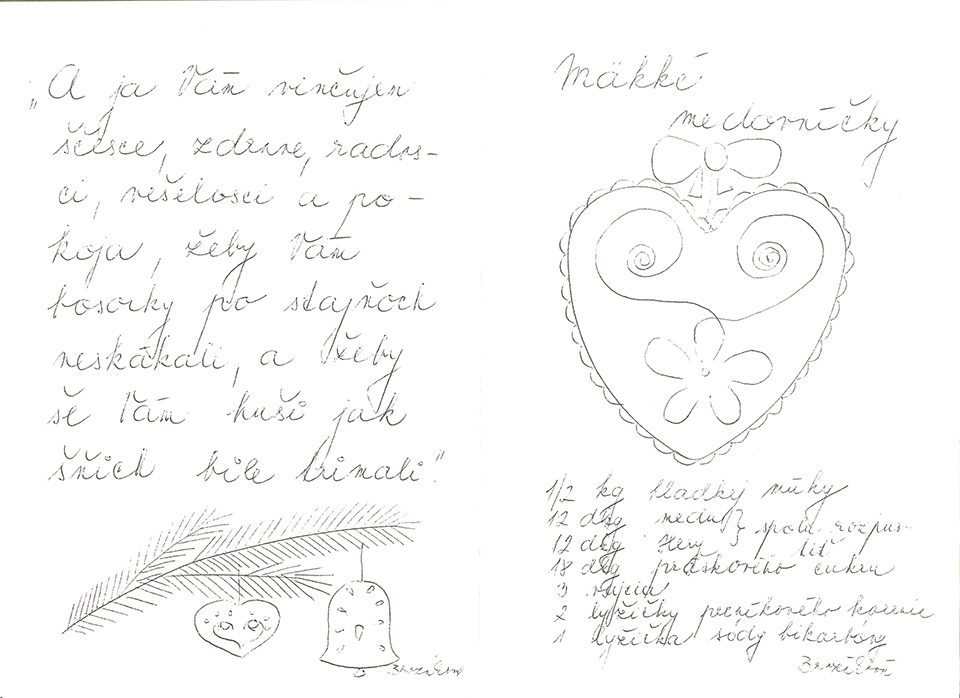 „A ja Vám vinčujem
ščesce, zdrave, rados-
ci, vešelosci a po-
koja, žeby Vám
bosorky po stajňoch
neskákali, a žeby
še Vám huši jak
šňich bile trimali".
Mäkké
medovníčky
1/2 kg hladkej múky
12 dkg medu } spolu rozpus-
12 dkg Hery } tiť
18 dkg práškového cukru
3 vajcia
2 lyžičky perníkového korenia
1 lyžička sódy bikarbóny